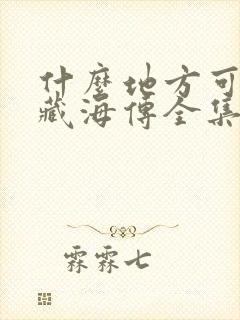 什麼地方可
藏海傳全集
霖霖七